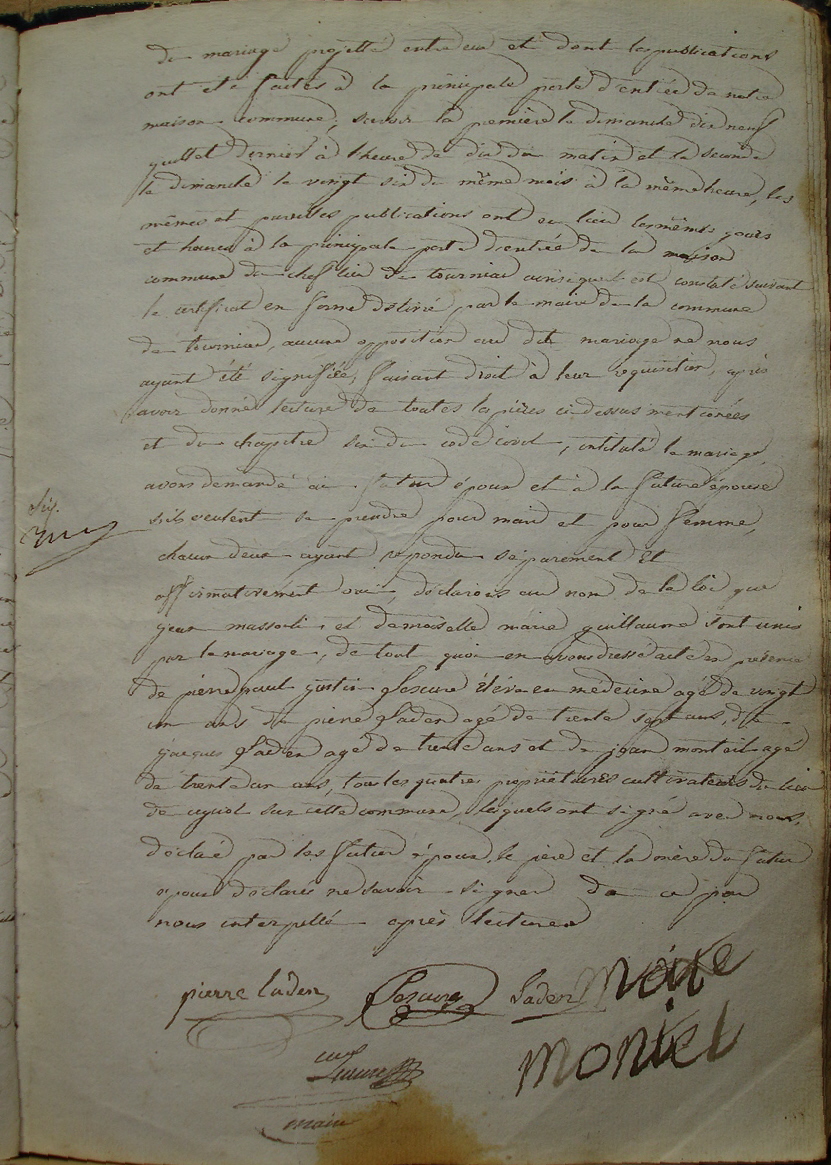 de mariage projetté entre eux et dont les publications
ont eté faites à la principale porte d'entrée de notre
maison commune, savoir la première le demanche dix neuf
juillet dernier à l'heure de dix du matin et la seconde
le dimanche le vingt six du même mois à la même heure, les
mêmes et pareilles publications ont eu lieu les mêmes jours
et heures à la principale porte d'entrée de la maison
commune du chef lieu de tourniac ainsi quil est constaté suivant
le certificat en forme délivré par le maire de la commune
de tourniac, aucune opposition au dit mariage ne nous
ayant été signifiée, faisant droit à leur requisition, après
avoir donné lecture de toutes les pièces ci dessus mentionées
et du chapitre six du code civil, intitulé le mariage,
avons demandé au futur époux et à la future épouse
s'ils veulent se prendre pour mari et pour femme,
chacun deux ayant repondu séparement et
affirmativement oui, déclarons au nom de la loi que
jean et demoiselle marie guillaume sont unis
par le mariage, de tout quoi en avons dressé acte en présence
de pierre paul justin Lescure élève en médecine agé de vingt
un ans de pierre Laden agé de trente sept ans, de
jacques Laden agé de trente ans et de jean monteil agé
de trente un ans, tous les quatre propriétaires cultivateurs du lieu
de sur cette commune, lesquels ont signé avec nous,
déclaré par les futur époux, le père et la mère du futur
époux déclaré ne savoir signer de ce par
nous interpellé après lecture
pierre laden Lescure Laden
montel
maire